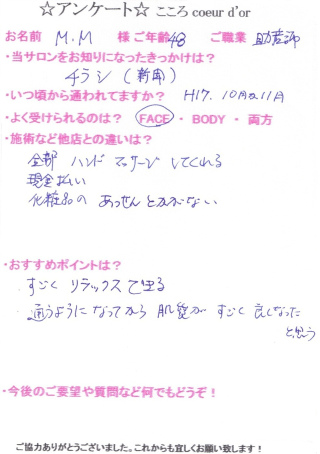 ☆アンケート☆ こころ coeur d'or
お名前 M.M 様 ご年齢 48 ご職業 助産師
・当サロンをお知りになったきっかけは？
チラシ (新聞)
・いつ頃から通われてますか？ H17. 10月か11月
・よく受けられるのは？ FACE ・ BODY ・ 両方
・施術など他店との違いは？
全部 ハンド マッサージ してくれる
現金払い
化粧品の あっせん とかがない
・おすすめポイントは？
・すごく リラックス できる
・通うように なってから 肌質が すごく 良くなった
と思う
・今後のご要望や質問など何でもどうぞ！
ご協力ありがとうございました。これからも宜しくお願い致します！